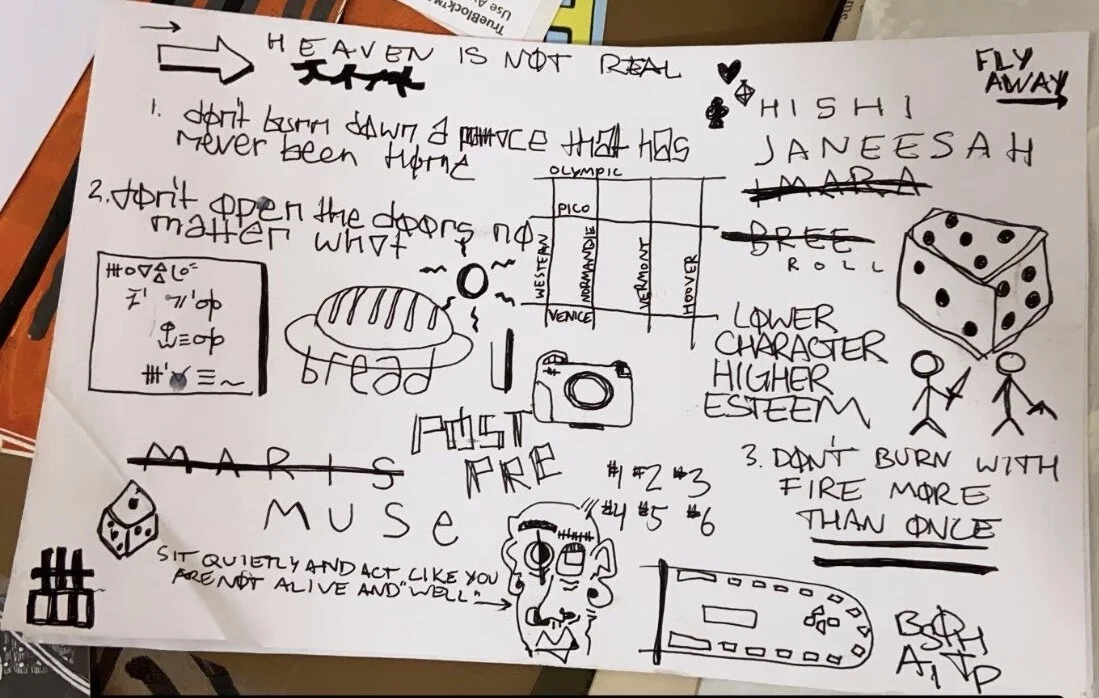 TrueBlock™
HEAVEN IS NOT REAL
FLY
AWAY
1. don't burn down a that has
never been
2. don't open the doors no
matter what
OLYMPIC
PICO
WESTERN
NORMANDIE
VERMONT
HOOVER
VENICE
HISHI
JANEESAH
IMARA
BREE
ROLL
bread
LOWER
CHARACTER
HIGHER
ESTEEM
POST
PRE
MARIS
MUSe
#1 #2 #3
#4 #5 #6
3. DON'T BURN WITH
FIRE MORE
THAN ONCE
SIT QUIETLY AND ACT LIKE YOU
ARE NOT ALIVE AND "WELL"